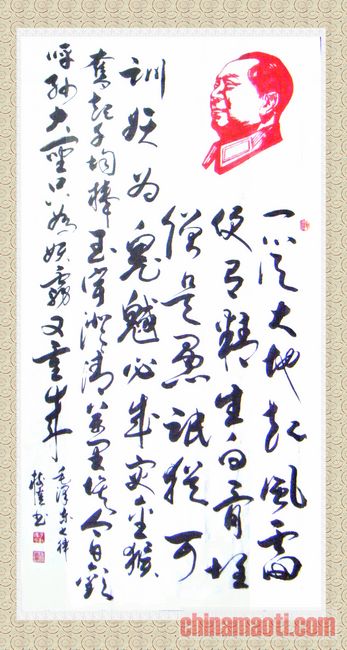 一從大地起風雷
便有精生白骨堆
僧是愚氓猶可
訓妖为鬼蜮必成灾金猴
奮起千鈞棒玉宇澄清萬里埃今日歡
呼孙大聖只缘妖霧又重来
毛澤東七律
书
chinamaoti.com